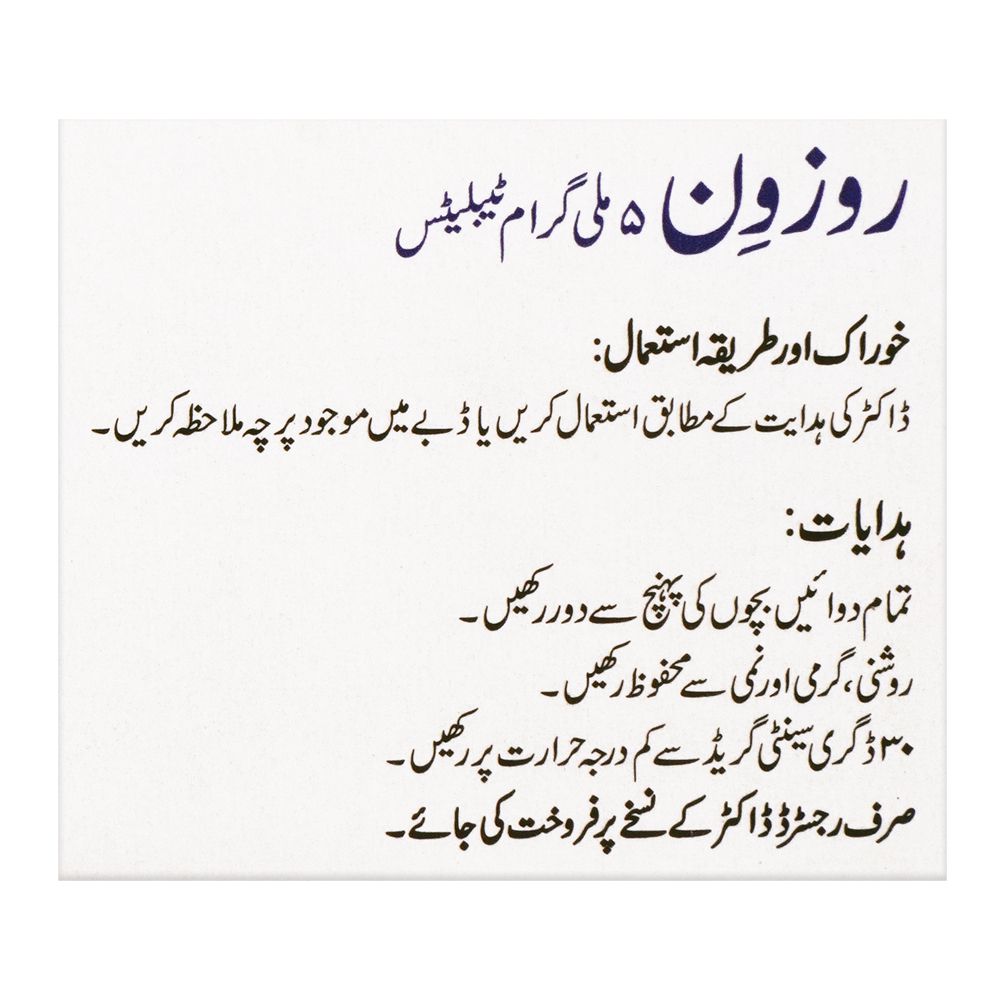 روزوِن ۵ ملی گرام ٹیبلیٹس
خوراک اور طریقہ استعمال:
ڈاکٹر کی ہدایت کے مطابق استعمال کریں یا ڈبے میں موجود پرچہ ملاحظہ کریں۔
ہدایات:
تمام دوائیں بچوں کی پہنچ سے دور رکھیں۔
روشنی، گرمی اور نمی سے محفوظ رکھیں۔
۳۰ ڈگری سینٹی گریڈ سے کم درجہ حرارت پر رکھیں۔
صرف رجسٹرڈ ڈاکٹر کے نسخے پر فروخت کی جائے۔